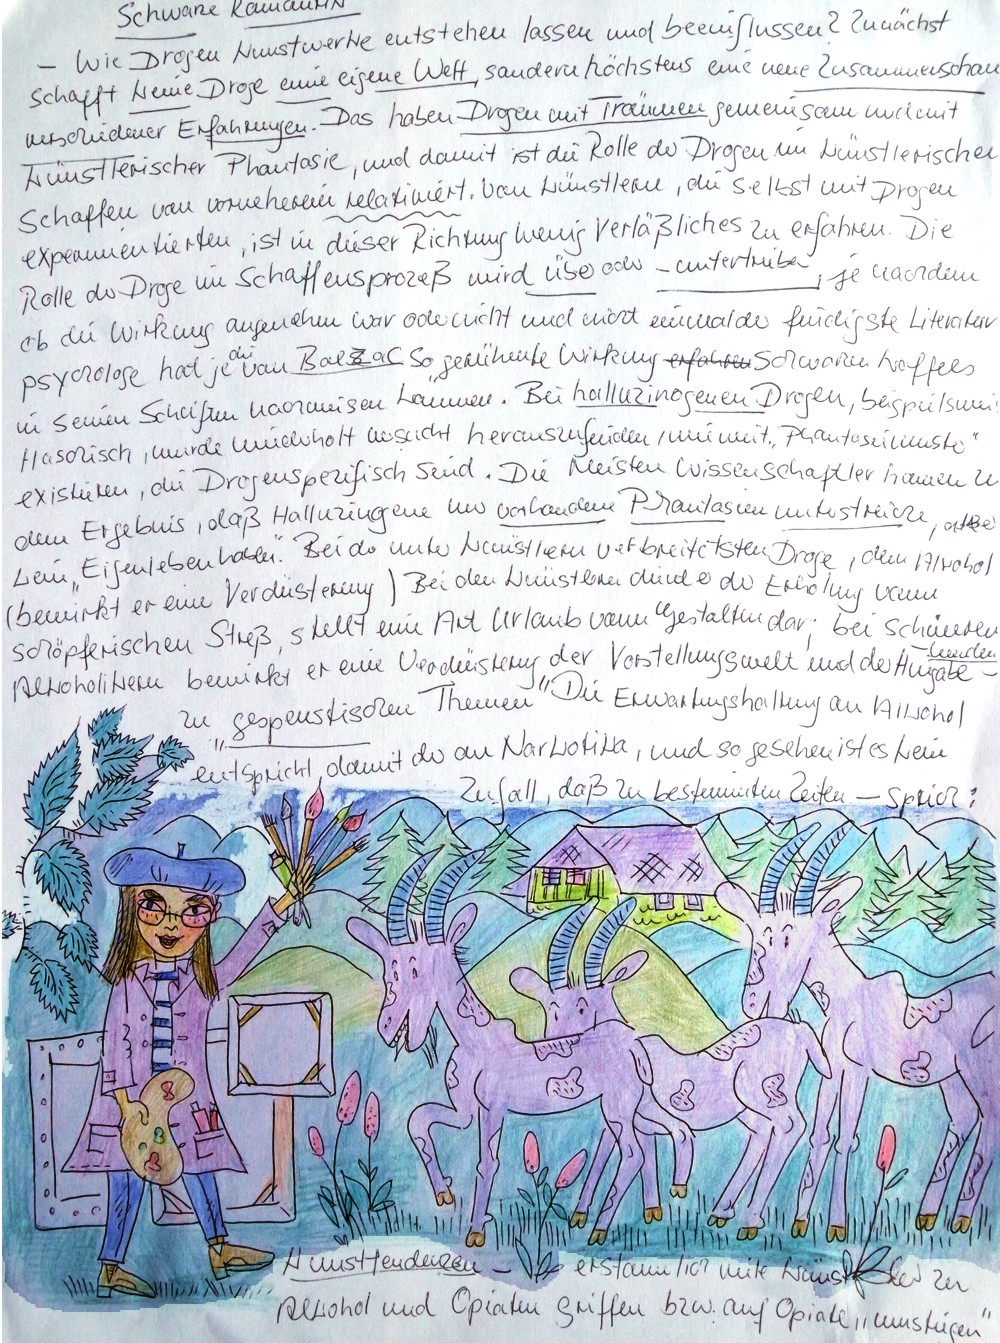 Schwane Ramann
– Wie Drogen Kunstwerke entstehen lassen und beeinflussen? Zunächst
schafft keine Droge eine eigene Welt, sondern höchstens eine neue Zusammenschau
verschiedener Erfahrungen. Das haben Drogen mit Träumen gemeinsam und mit
künstlerischer Phantasie, und damit ist die Rolle der Drogen im künstlerischen
Schaffen von vorneherein relativiert. Von Künstlern, die selbst mit Drogen
experimentierten, ist in dieser Richtung wenig Verläßliches zu erfahren. Die
Rolle der Droge im Schaffensprozeß wird über oder – untertrieben, je nachdem
ob die Wirkung angenehm war oder nicht und nicht einmal der findigste Literatur
psychologe hat je die von Balzac so gerühmte Wirkung schwarzen Kaffees
in seinen Schriften nachweisen können. Bei halluzinogenen Drogen, beispielswei
Haschisch, wurde wiederholt versucht herauszufinden, wie weit „Phantasiemuster"
existieren, die Drogenspezifisch sind. Die Meisten Wissenschaftler kamen zu
dem Ergebnis, daß Halluzinogene nur vorhandene Phantasien unterstreichen, aber
kein „Eigenleben haben". Bei der unter Künstlern verbreitetsten Droge, dem Alkohol
(bewirkt er eine Verdüsterung) Bei den Künstlern dient er der Erholung vom
schöpferischen Streß, stellt eine Art Urlaub vom Gestalten dar; bei schweren
Alkoholikern bewirkt er eine Verdüsterung der Vorstellungswelt und die Hingabe –
zu gespenstischen Themen" Die Erwartungshaltung an Alkohol
entspricht damit der an Narkotika, und so gesehen ist es kein
Zufall, daß zu bestimmten Zeiten – sprich:
Kunsttendenzen – erstaunlich viele Künstler zu
Alkohol und Opiaten griffen bzw. auf Opiate „umstiegen"